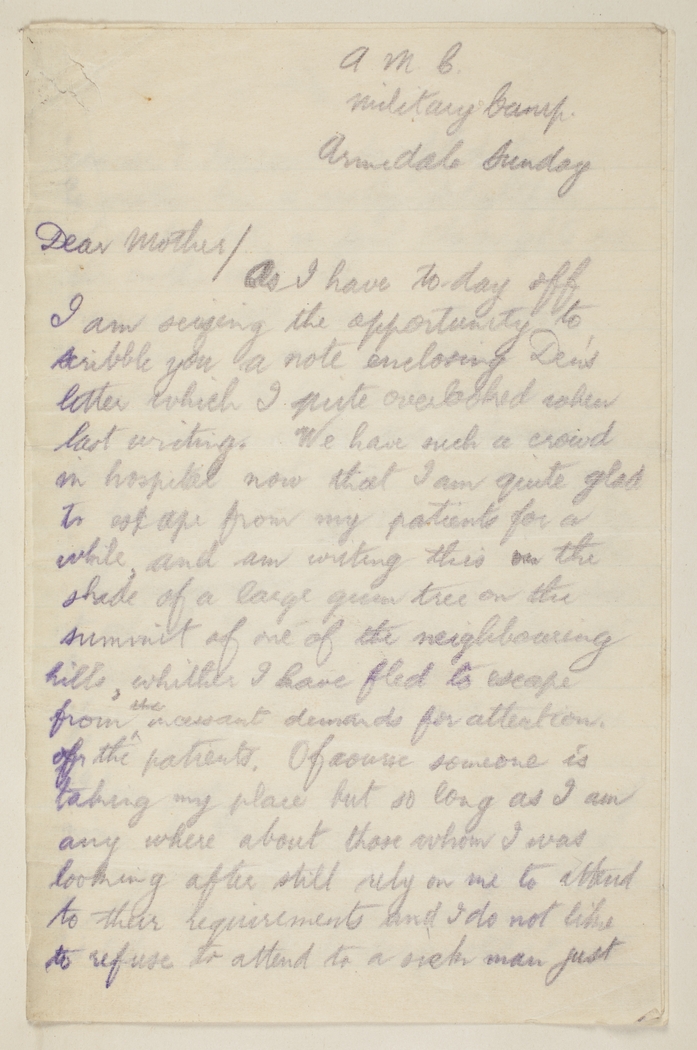 A M C
Military Camp.
Armidale Sunday
Dear Mother/
As I have to-day off
I am seizing the opportunity to
scribble you a note enclosing Den's
letter which I quite overlooked when
last writing. We have such a crowd
in hospital now that I am quite glad
to escape from my patients for a
while, and am writing this in the
shade of a large gum tree on the
summit of one of the neighbouring
hills, whither I have fled to escape
from the incessant demands for attention.
of the patients. Ofcourse someone is
taking my place but so long as I am
any where about those whom I was
looking after still rely on me to attend
to their requirements and I do not like
to refuse to attend to a sick man just